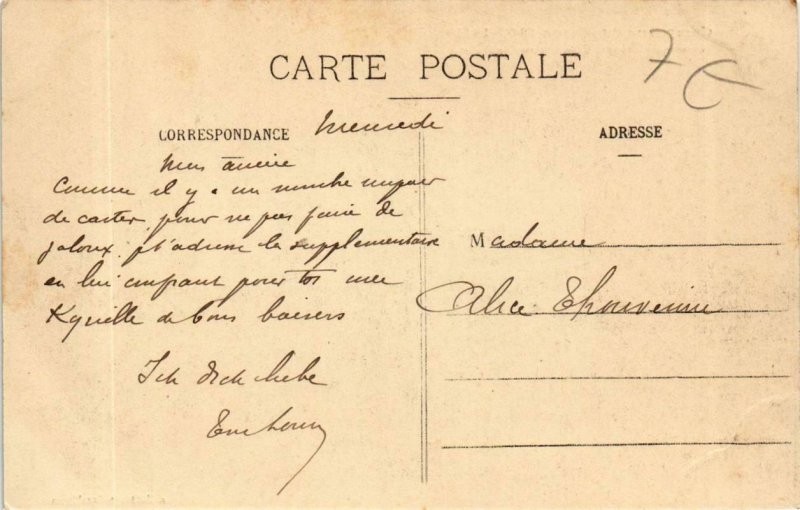 CARTE POSTALE
7 €
CORRESPONDANCE
ADRESSE
Mercredi
Mon
Comme il y a un nombre impair
de cartes, pour ne pas faire de
jaloux, je t'adresse la supplémentaire
en lui confiant pour toi une
Kyrielle de bons baisers
Ich dich liebe
Madame
Alice Thouvenin